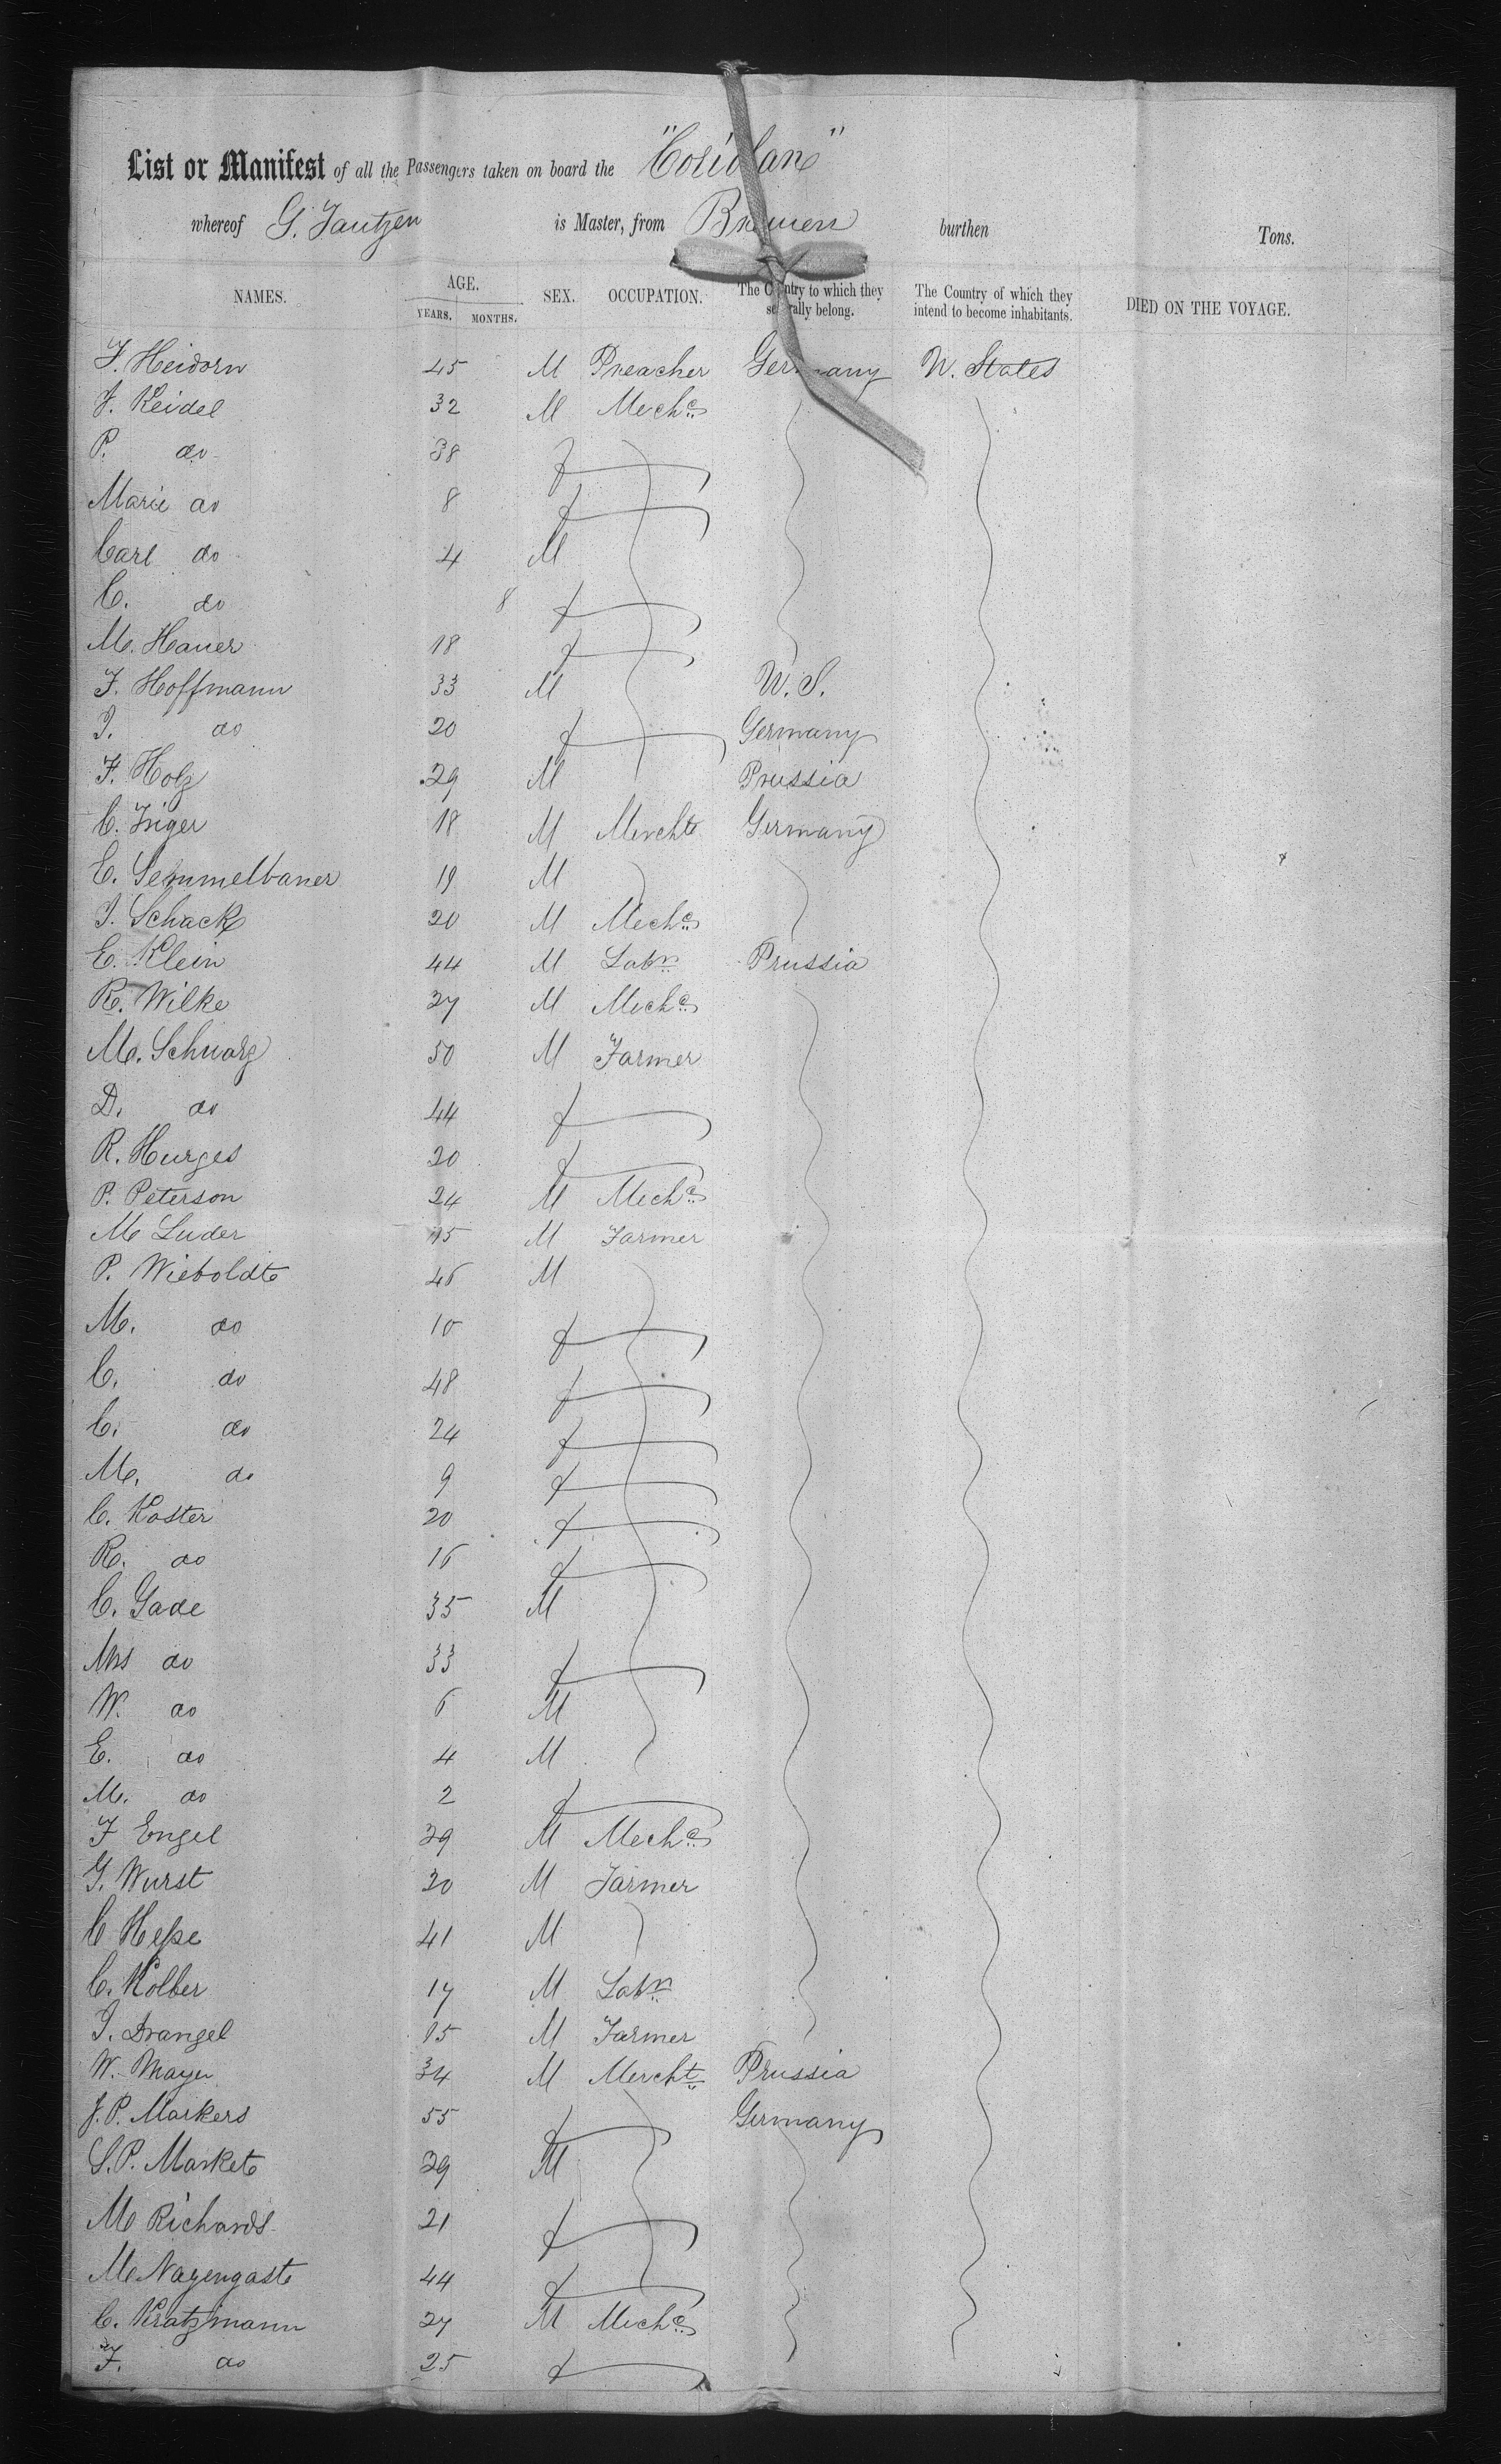 List or Manifest of all the Passengers taken on board the "Coriolan"
whereof G. Jantzen is Master, from Bremen burthen Tons.
NAMES. AGE. YEARS. MONTHS. SEX. OCCUPATION. The Country to which they severally belong. The Country of which they intend to become inhabitants. DIED ON THE VOYAGE.
F. Heidorn 45 M Preacher Germany U. States
J. Keidel 32 M Mechc
P. do 38 f
Marie do 8 f
Carl do 4 M
C. do 8 f
M. Hauer 18 f
F. Hoffmann 33 M U. S.
J. do 20 f Germany
F. Holz 29 M Prussia
C. Iriger 18 M Mercht Germany
E. Semmelbauer 19 M
J. Schack 20 M Mechc
E. Klein 44 M Labr Prussia
R. Wilke 27 M Mechc
M. Schwarz 50 M Farmer
D. do 44 f
R. Hurges 20 f
P. Peterson 24 M Mechc
M Luder 15 M Farmer
P. Wieboldt 46 M
M. do 10 f
C. do 48 f
C. do 24 f
M. do 9 f
C. Koster 20 f
R. do 16 f
C. Gade 35 M
Mrs do 33 f
W. do 6 M
E. do 4 M
M. do 2 f
F Engel 29 M Mechc
G. Wurst 30 M Farmer
C Hesse 41 M
C. Kolber 17 M Labr
J. Drangel 15 M Farmer
W. Mayer 34 M Mercht Prussia
J. P. Markers 55 f Germany
S. P. Market 29 M
M Richards 21 f
M Nagengast 44 f
C. Kratzmann 27 M Mechc
F. do 25 f